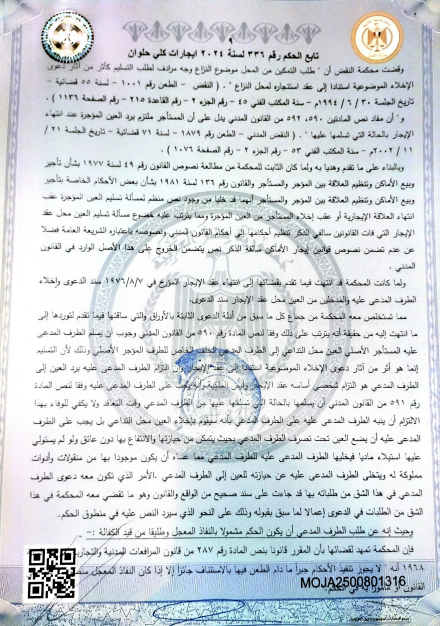 تابع الحكم رقم ٣٣٦ لسنة ٢٠٢٤ ايجارات كلي حلوان
وقضت محكمة النقض أن " طلب التمكين من المحل موضوع النزاع وجه مرادف لطلب التسليم كأثر من آثار دعوى
الإخلاء الموضوعية استنادا إلى عقد استئجاره لمحل النزاع " . ( النقض - الطعن رقم ١٠٠١ لسنة ٥٥ قضائية -
تاريخ الجلسة ٣٠ / ٦ / ١٩٩٤ - مكتب الفني ٤٥ - رقم الجزء ٢ - رقم القاعدة ٢١٥ - رقم الصفحة ١١٣٦ )
و " أن مفاد نص المادتين ٥٩٠، ٥٩٢ من القانون المدني يدل على أن المستأجر ملتزم برد العين المؤجرة عند انتهاء
الإيجار بالحالة التي تسلمها عليها " . ( النقض المدني - الطعن رقم ١٨٧٩ لسنة ٧١ قضائية - تاريخ الجلسة ٢١ /
١١ / ٢٠٠٢ - سنة المكتب الفني ٥٣ - رقم الجزء ٢ - رقم الصفحة ١٠٧٦ )
وبالبناء على ما تقدم وهديا به ولما كان الثابت للمحكمة من مطالعة نصوص القانون رقم ٤٩ لسنة ١٩٧٧ بشأن تأجير
وبيع الأماكن وتنظيم العلاقة بين المؤجر والمستأجر والقانون رقم ١٣٦ لسنة ١٩٨١ بشأن بعض الأحكام الخاصة بتأجير
وبيع الأماكن وتنظيم العلاقة بين المؤجر والمستأجر أنهما قد خليا من وجود نص منظم لمسألة تسليم العين المؤجرة عقب
انتهاء العلاقة الإيجارية أو عقب إخلاء المستأجر من العين المؤجرة ومما يترتب عليه خضوع مسألة تسليم العين محل عقد
الإيجار التي فات القانونين سالفي الذكر تنظيم أحكامها إلى أحكام القانون المدني ونصوصه باعتباره الشريعة العامة فضلا
عن عدم تضمن نصوص قوانين إيجار الأماكن سالفة الذكر نص يتضمن الخروج على هذا الأصل الوارد في القانون
المدني .
ولما كانت المحكمة قد انتهت فيما تقدم بقضائها إلى انتهاء عقد الإيجار المؤرخ في ١٩٧٦/٨/٧ سند الدعوى وإخلاء
الطرف المدعى عليه والمتدخلين من العين محل عقد الإيجار سند الدعوى.
مما تستخلص معه المحكمة من جماع كل ما سبق من أدلة الدعوى الثابتة بالأوراق والتي ساقتها فيما تقدم لتوردها إلى
ما انتهت إليه من حقيقة أنه يترتب على ذلك وفقا لنص المادة رقم ٥٩٠ من القانون المدني وجوب أن يسلم الطرف المدعى
عليه المستأجر الأصلي العين محل التداعي إلى الطرف المدعي الخلف الخاص للطرف المؤجر الأصلي وذلك لأن التسليم
إنما هو أثر من آثار دعوى الإخلاء الموضوعية استنادا إلى عقد الإيجار وأن التزام الطرف المدعى عليه برد العين إلى
الطرف المدعي هو التزام شخصي أساسه عقد الإيجار وليس الملكية على الطرف المدعى عليه وفقا لنص المادة
رقم ٥٩١ من القانون المدني أن يسلمها بالحالة التي تسلمها عليها من الطرف المدعي وقت التعاقد ولا يكفي للوفاء بهذا
الالتزام أن ينبه الطرف المدعى عليه على الطرف المدعي بأنه سيقوم بإخلاء العين محل التداعي بل يجب على الطرف
المدعى عليه أن يضع العين تحت تصرف الطرف المدعي بحيث يتمكن من حيازتها والانتفاع بها دون عائق ولو لم يستولي
عليها استيلاء ماديا فيخليها الطرف المدعى عليه للطرف المدعي مما عساه أن يكون موجودا بها من منقولات وأدوات
مملوكة له ويتخلى الطرف المدعى عليه عن حيازته للعين إلى الطرف المدعي .الأمر الذي تكون معه دعوى الطرف
المدعي في هذا الشق من طلباته بها قد جاءت على سند صحيح من الواقع والقانون وهو ما تقضي معه المحكمة في هذا
الشق من الطلبات في الدعوى إعمالا لما سبق بقبوله وذلك على النحو الذي سيرد النص عليه في منطوق الحكم.
وحيث إنه عن طلب الطرف المدعي أن يكون الحكم مشمولا بالنفاذ المعجل وطليقا من قيد الكفالة :-
فإن المحكمة تمهد لقضائها بأن المقرر قانونا بنص المادة رقم ٢٨٧ من قانون المرافعات المدنية والتجارية
١٩٦٨ أنه " لا يجوز تنفيذ الأحكام جبرا ما دام الطعن فيها بالاستئناف جائزا إلا إذا كان النفاذ المعجل
القانون أو مأمورا به في الحكم.
MOJA2500801316